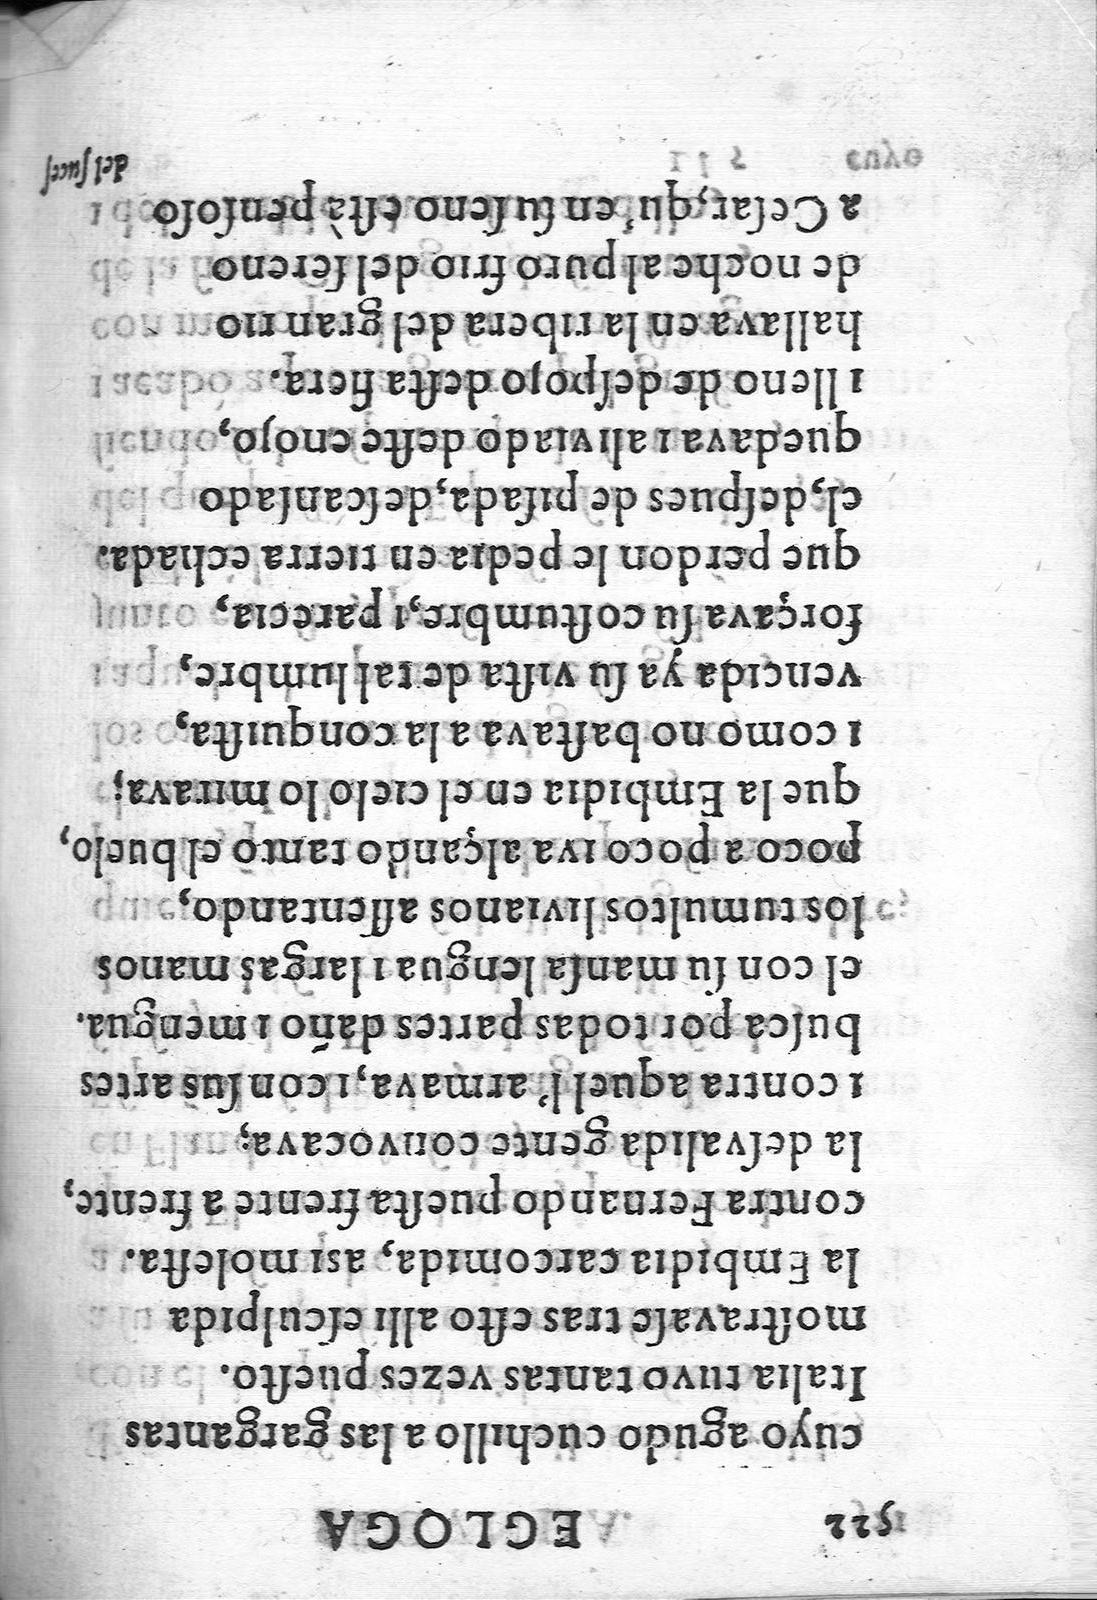 522 EGLOGA
cuyo agudo cuchillo a las gargantas
Italia tuvo tantas vezes puesto.
moſtravaſe tras eſto alli eſculpida
la Embidia carcomida, asi moleſta.
contra Fernando pueſta frente a frente,
la deſvalida gente convocava;
i contra aquel l' armava, i con ſus artes
buſca por todas partes daño i mengua.
el con ſu manſa lengua i largas manos
los tumultos livianos aſſentando,
poco a poco iva alçando tanto el buelo,
que la Embidia en el cielo lo mirava;
i como no baſtava a la conquiſta,
vencida ya ſu viſta de tal lumbre,
forçava ſu coſtumbre, i parecia,
que perdon le pedia en tierra echada.
el, deſpues de piſada, deſcanſado
quedava i aliviado deſte enojo,
i lleno de deſpojo deſta fiera.
hallava en la ribera del gran rio
de noche al puro frio del ſereno
a Ceſar, qu'en ſu ſeno eſtà penſoſo
del ſuceſ